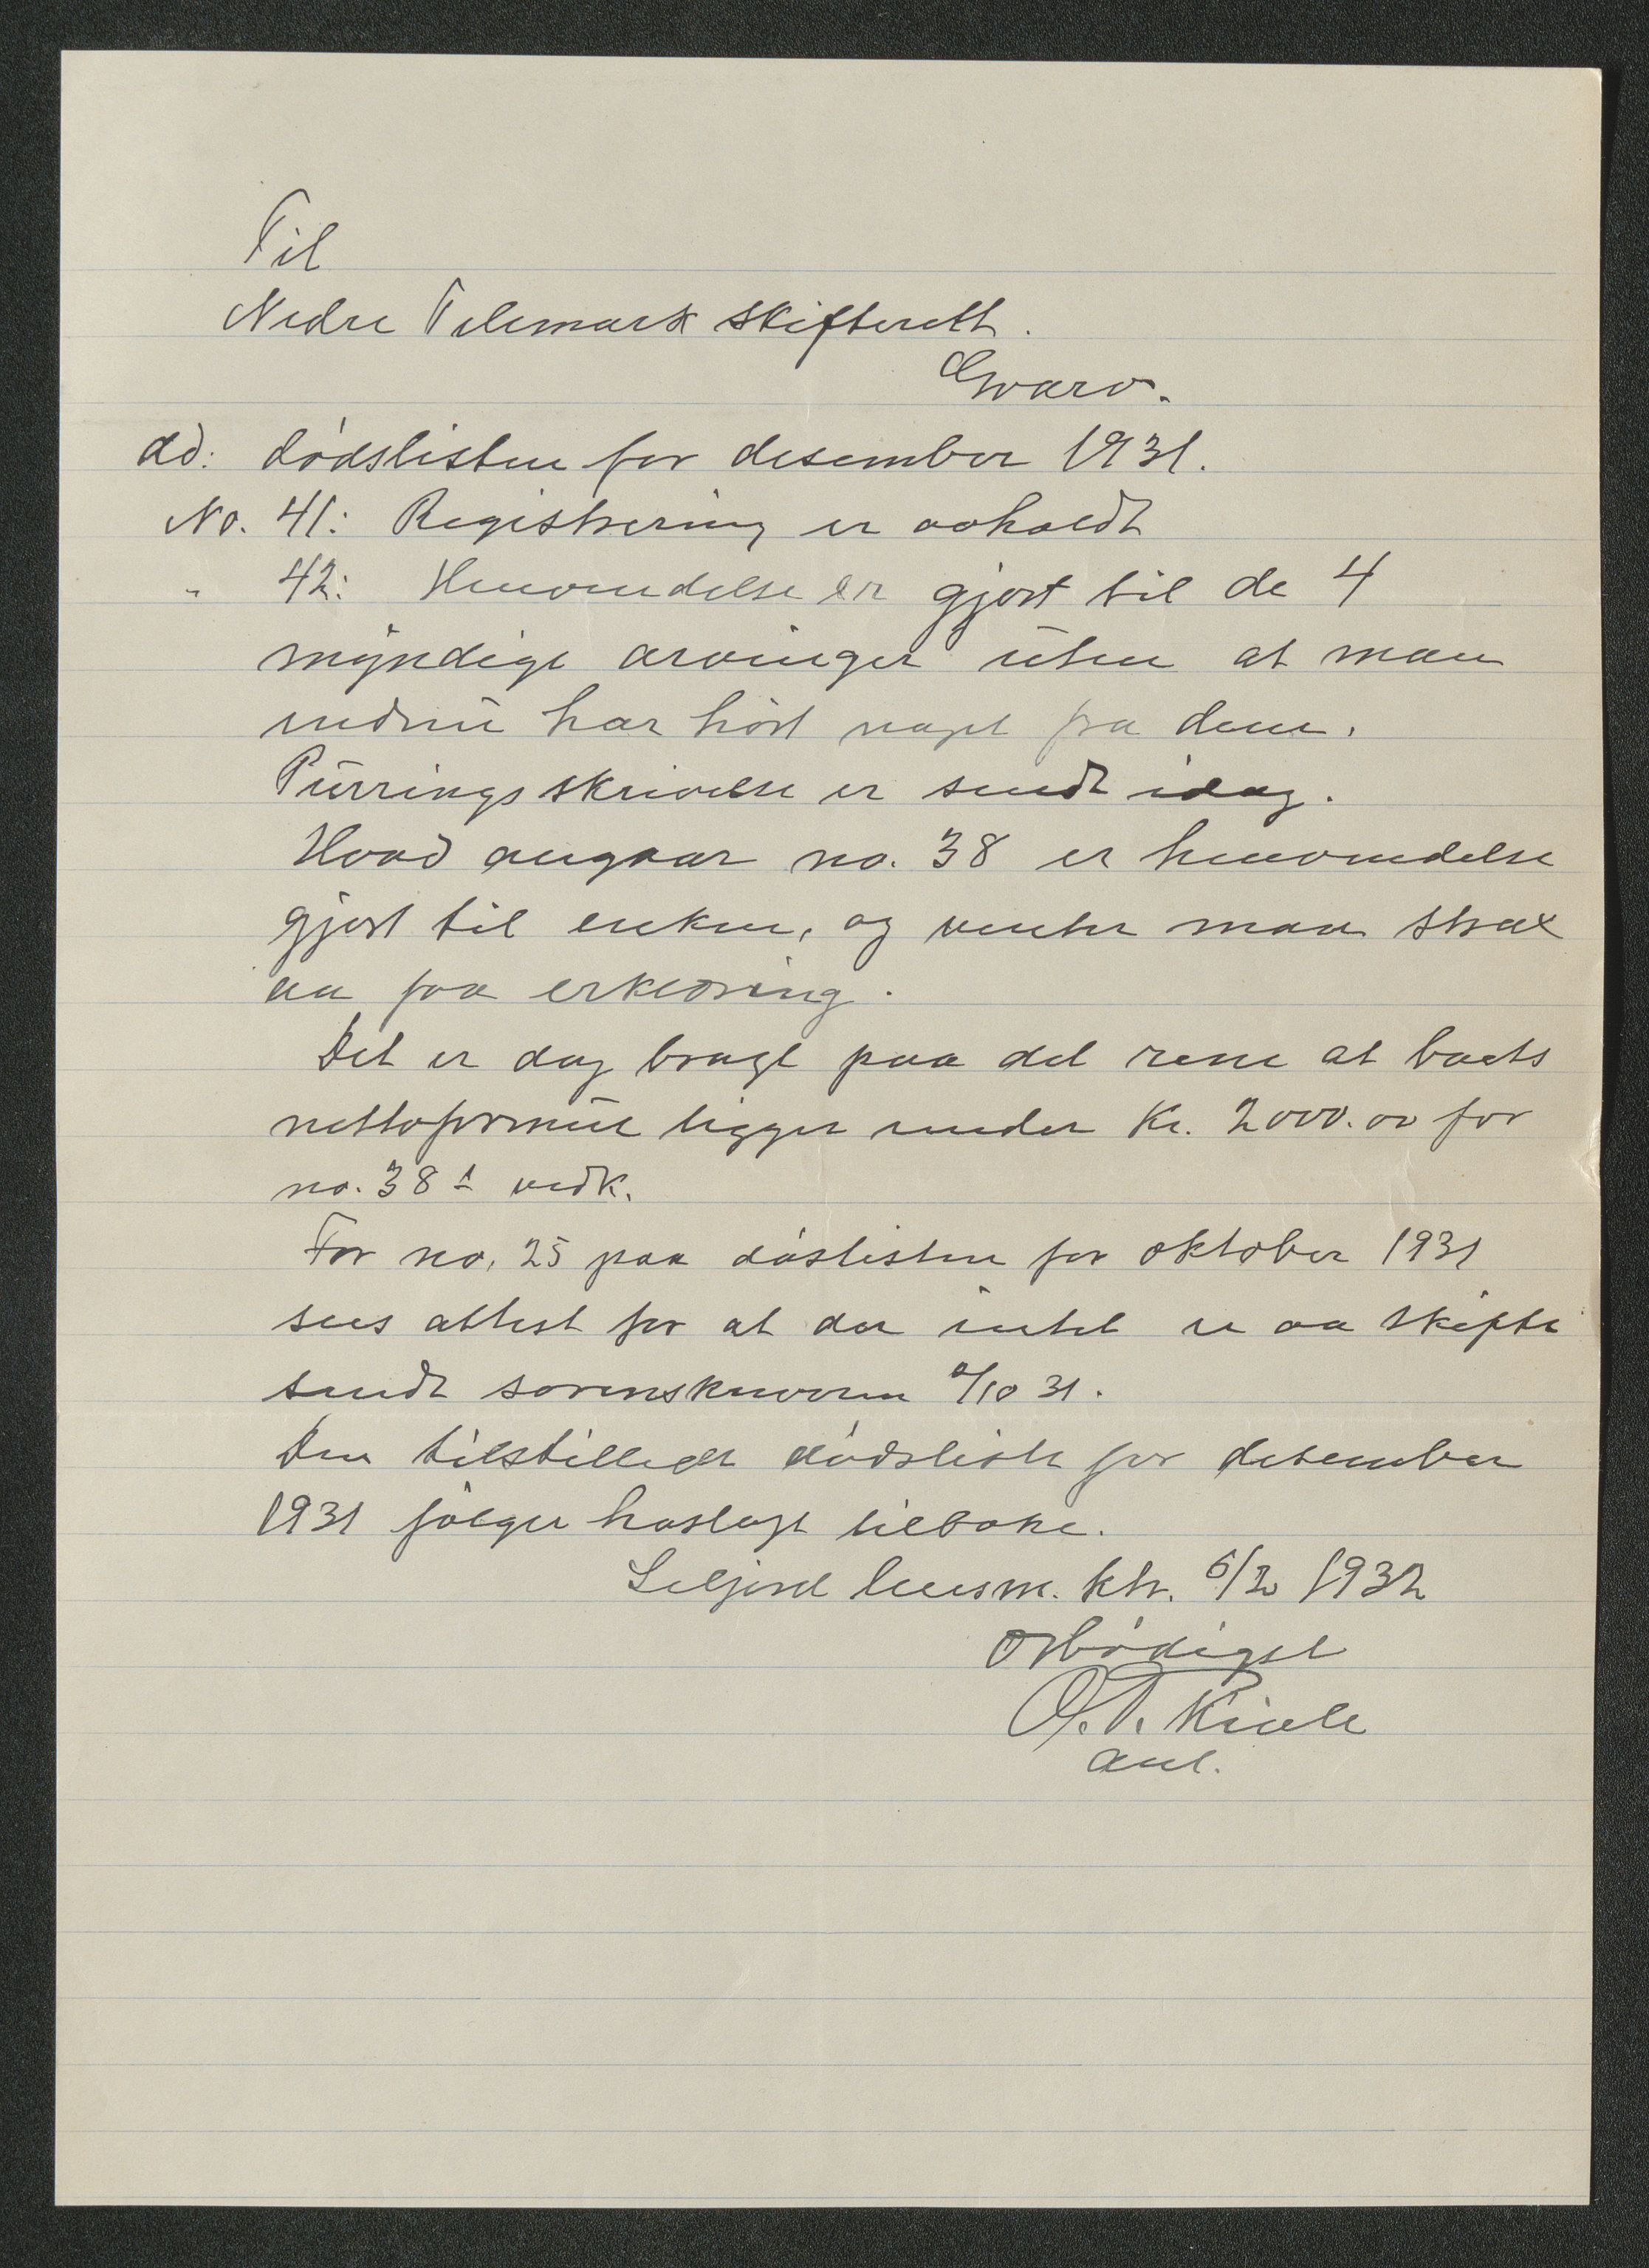 Til
Nedre Telemark skifterett.
Gvarv.
Ad: dödslisten for desember 1931.
No. 41: Registrering er avholdt
" 42: Henvendelse er gjort til de 4
myndige arvinger uten at man
endnu har hört noget fra dem.
Purringsskrivelse er sendt idag.
Hvad angaar no. 38 er henvendelse
gjort til enken, og venter man strax
aa faa erklæring.
Det er dog bragt paa det rene at boets
nettoformue ligger under Kr. 2000.00 for
no. 38s vedk.
For no. 25 paa döslisten for oktober 1931
sees attest for at der intet er aa skifte
sendt sorenskriveren /10 31.
Den tilstillede dödsliste for desember
1931 fölger hoslagt tilbake.
Seljord lensm. ktr. 6/2 1932
Ærbödigst
O. T. Kivle